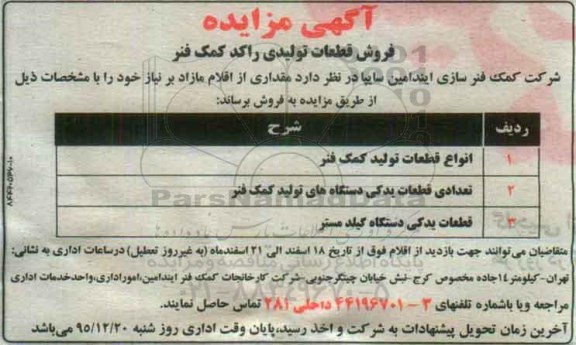 آگهی مزایده
فروش قطعات تولیدی راکد کمک فنر
شرکت کمک فنر سازی ایندامین سایپا در نظر دارد مقداری از اقلام مازاد بر نیاز خود را با مشخصات ذیل
از طریق مزایده به فروش برساند:
ردیف شرح
۱ انواع قطعات تولید کمک فنر
۲ تعدادی قطعات یدکی دستگاه های تولید کمک فنر
۳ قطعات یدکی دستگاه گیلد مستر
متقاضیان می توانند جهت بازدید از اقلام فوق از تاریخ ۱۸ اسفند الی ۲۱ اسفندماه (به غیرروز تعطیل) درساعات اداری به نشانی:
تهران-کیلومتر۱۴جاده مخصوص کرج-نبش خیابان چیتگرجنوبی-شرکت کارخانجات کمک فنر ایندامین،اموراداری،واحدخدمات اداری
مراجعه ویا باشماره تلفنهای ۳ - ۴۴۱۹۶۷۰۱ داخلی ۲۸۱ تماس حاصل نمایند.
آخرین زمان تحویل پیشنهادات به شرکت و اخذ رسید،پایان وقت اداری روز شنبه ۹۵/۱۲/۲۰ می‌باشد
ParsNamadData